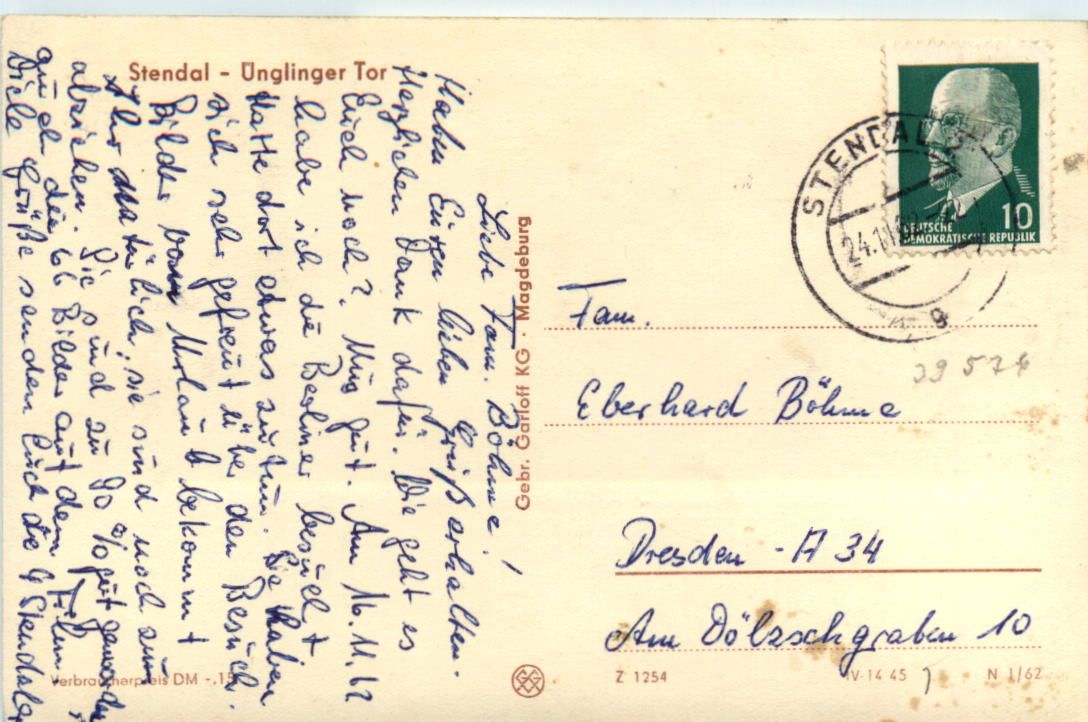 Stendal - Ünglinger Tor
Liebe Fam. Böhme!
Haben Euren lieben Gruß erhalten.
Herzlichen Dank dafür. Wie geht es
Euch noch? Uns gut. Am 16.11.62
habe ich die Berliner besucht
Hatte dort etwas zu tun. Sie haben
sich sehr gefreut über den Besuch.
Bilder vom Urlaub bekommt
Ihr natürlich, sie sind noch zum
abziehen. Sie sind zu 90 % gut geworden
auch die 66 Bilder auf dem Film.
Viele Grüße senden Euch die 4 Stendaler
Gebr. Garloff KG · Magdeburg
STENDAL
24.11.62
g
10
DEUTSCHE
DEMOKRATISCHE REPUBLIK
39574
Fam.
Eberhard Böhme
Dresden - A 34
Am Dölzschgraben 10
Verbraucherpreis DM -,15
Z 1254
IV-14 45
N 1/62